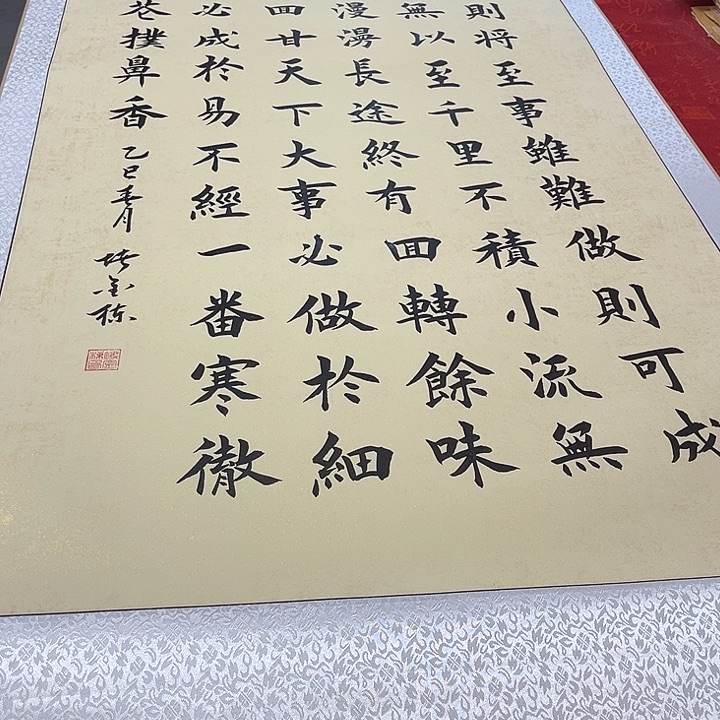 則將至事雖難做則可成
無以至千里不積小流無
漫漫長途終有囬轉餘味
囬甘天下大事必做扵細
必成扵易不經一番寒徹
花撲鼻香乙巳春月金栋